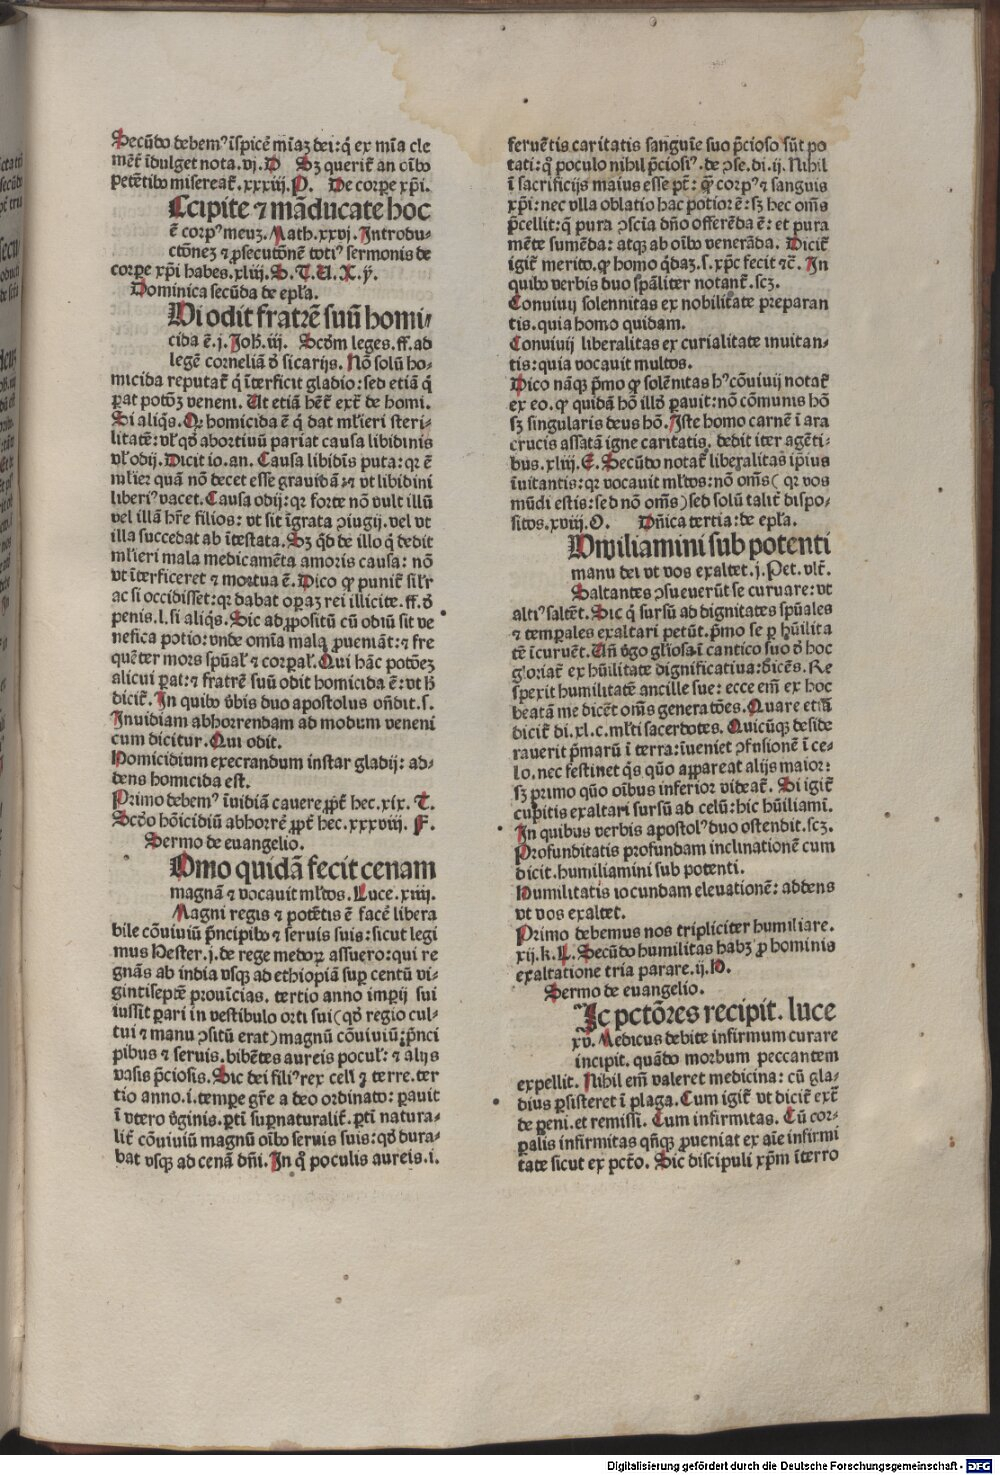 Secūdo debemꝰ īspicẽ mīaʒ dei: q̄ ex mīa cle
mēt̄ īdulget nota.vj.D Sʒ querit̄ an oībꝰ
petētibꝰ misereat̄.xxxiij.P. De corpe xp̄i.
Accipite ⁊ māducate hoc
ē corpꝰ meuʒ. Math.xxvj. Introdu⸗
ctōneʒ ⁊ ꝓsecutōnē totiꝰ sermonis de
corpe xp̄i habes.xliij.S.T.U.X.ẏ.
Dominica secūda de ep̄la.
Qui odit fratrē suū homi⸗
cida ē.j.Joh̄.iij. Scd̄m leges.ff.ad
legē corneliā d̄ sicarijs. Nō solū ho⸗
micida reputat̄ q̄ īterficit gladio: sed etiā q̄
ꝑat potōʒ veneni. Ut etiā het̄ ext̄ de homi.
Si aliq̄s. Qꝫ homicida ē q̄ dat ml̄ieri steri⸗
litatē: vl̄ qd̄ abortiuū pariat causa libidinis
vl̄ odij. Dicit io.an. Causa libidīs puta: qꝛ ē
ml̄ier quā nō decet esse grauidā: ⁊ vt libidini
liberiꝰ vacet. Causa odij: qꝛ forte nō vult illū
vel illā hr̄e filios: vt sit īgrata ↄiugij. vel vt
illa succedat ab ītestata. Sʒ qd̄ de illo q̄ dedit
ml̄ieri mala medicamēta amoris causa: nō
vt īterficeret ⁊ mortua ē. Dico ꝙ punit̄ sil̄r
ac si occidisset: qꝛ dabat opaʒ rei illicite. ff. d̄
penis.l. si aliq̄s. Sic ad ꝓpositū cū odiū sit ve
nefica potio: vnde omīa mala ꝓueniāt: ⁊ fre
quēter mors spūal̄ ⁊ corpal̄. Qui hāc potōeʒ
alicui ꝑat: ⁊ fratrē suū odit homicida ē: vt h̄
dicit̄. In quibꝰ v̄bis duo apostolus on̄dit.s.
Inuidiam abhorrendam ad modum veneni
cum dicitur. Qui odit.
Homicidium execrandum instar gladij: ad⸗
dens homicida est.
Primo debemꝰ īuidiā cauere ꝓpt̄ hec.xix. T.
Scd̄o hōicidiū abhorrē ꝓpt̄ hec.xxxviij. F.
Sermo de euangelio.
Homo quidā fecit cenam
magnā ⁊ vocauit ml̄tos. Luce.xiiij.
Magni regis ⁊ potētis ē facē libera
bile cōuiuiū p̄ncipibꝰ ⁊ seruis suis: sicut legi
mus Hester.j. de rege medoꝝ assuero: qui re
gnās ab india vsqꝫ ad ethiopiā suꝑ centū vi⸗
gintiseptē prouīcias. tertio anno imꝑij sui
iussit ꝑari in vestibulo orti sui(qd̄ regio cul⸗
tui ⁊ manu ↄsitū erat) magnū cōuiuiū p̄nci
pibus ⁊ seruis. bibētes aureis pocul̄: ⁊ alijs
vasis p̄ciosis. Sic dei filiꝰ rex celi ⁊ terre. ter
tio anno.i. tempe gr̄e a deo ordinato: ꝑauit
ī vtero v̄ginis. ꝑtī suꝑnaturalit̄. ꝑtī natura⸗
lit̄ cōuiuiū magnū oībꝰ seruis suis: qd̄ dura⸗
bat vsqꝫ ad cenā dn̄i. In q̄ poculis aureis.i.
feruētis caritatis sanguīe suo p̄cioso sūt po
tati: q̄ poculo nihil p̄ciosiꝰ. de ↄse.di.ij. Nihil
ī sacrificijs maius esse pt̄: qꝫ corpꝰ ⁊ sanguis
xp̄i: nec vlla oblatio hac potior ē: sʒ hec om̄s
p̄cellit: q̄ pura ↄsciā dn̄o offerēda ē: et pura
mēte sumēda: atqꝫ ab oībꝰ venerāda. Dicit̄
igit̄ merito. ꝙ homo q̄daʒ.s. xp̄c fecit ⁊c̄. In
quibꝰ verbis duo spāliter notant̄.scʒ.
Conuiuij solennitas ex nobilitate preparan
tis. quia homo quidam.
Conuiuij liberalitas ex curialitate inuitan⸗
tis: quia vocauit multos.
Dico nāqꝫ p̄mo ꝙ solēnitas hꝰ cōuiuij notat̄
ex eo. ꝙ quidā hō illd̄ ꝑauit: nō cōmunis hō
sʒ singularis deus hō. Iste homo carnē ī ara
crucis assatā igne caritatis. dedit iter agēti⸗
bus.xliij.E. Secūdo notat̄ liberalitas ip̄ius
īuitantis: qꝛ vocauit ml̄tos: nō om̄s( qꝛ vos
mūdi estis: sed nō om̄s) sed solū talit̄ dispo⸗
sitos.xviij.O. Dn̄ica tertia: de ep̄la.
Humiliamini sub potenti
manu dei vt vos exaltet.j.Pet.vlt̄.
Saltantes ↄsueuerūt se curuare: vt
altiꝰ saltēt. Sic q̄ sursū ad dignitates spūales
⁊ temꝑales exaltari petūt. p̄mo se ꝑ hūilita
tē īcuruēt. Un̄ v̄go gl̄iosa ī cantico suo d̄ hoc
gloriat̄ ex hūilitate dignificatiua: dicēs. Re
spexit humilitatē ancille sue: ecce em̄ ex hoc
beatā me dicēt om̄s generatōes. Quare etiā
dicit̄ di.xl.c. ml̄ti sacerdotes. Quicūqꝫ deside
rauerit p̄marū ī terra: īueniet ↄfusionē ī ce⸗
lo. nec festinet q̄s quō aꝑpareat alijs maior:
sʒ primo quō oībus inferior videat̄. Si igit̄
cupitis exaltari sursū ad celū: hic hūiliami.
In quibus verbis apostolꝰ duo ostendit.scʒ.
Profunditatis profundam inclinationē cum
dicit. humiliamini sub potenti.
Humilitatis iocundam eleuationē: addens
vt vos exaltet.
Primo debemus nos tripliciter humiliare.
xij.k.L. Secūdo humilitas habʒ ꝓ hominis
exaltatione tria parare.ij.H.
Sermo de euangelio.
Hic pctōres recipit. luce
xv̄. Medicus debite infirmum curare
incipit. quādo morbum peccantem
expellit. Nihil em̄ valeret medicina: cū gla⸗
dius ꝑsisteret ī plaga. Cum igit̄ vt dicit̄ ext̄
de peni. et remissi. Cum infirmitas. Cū cor⸗
ꝑalis infirmitas qn̄qꝫ ꝓueniat ex aīe infirmi
tate sicut ex pctō. Sic discipuli xp̄m īterro
Digitalisierung gefördert durch die Deutsche Forschungsgemeinschaft - DFG